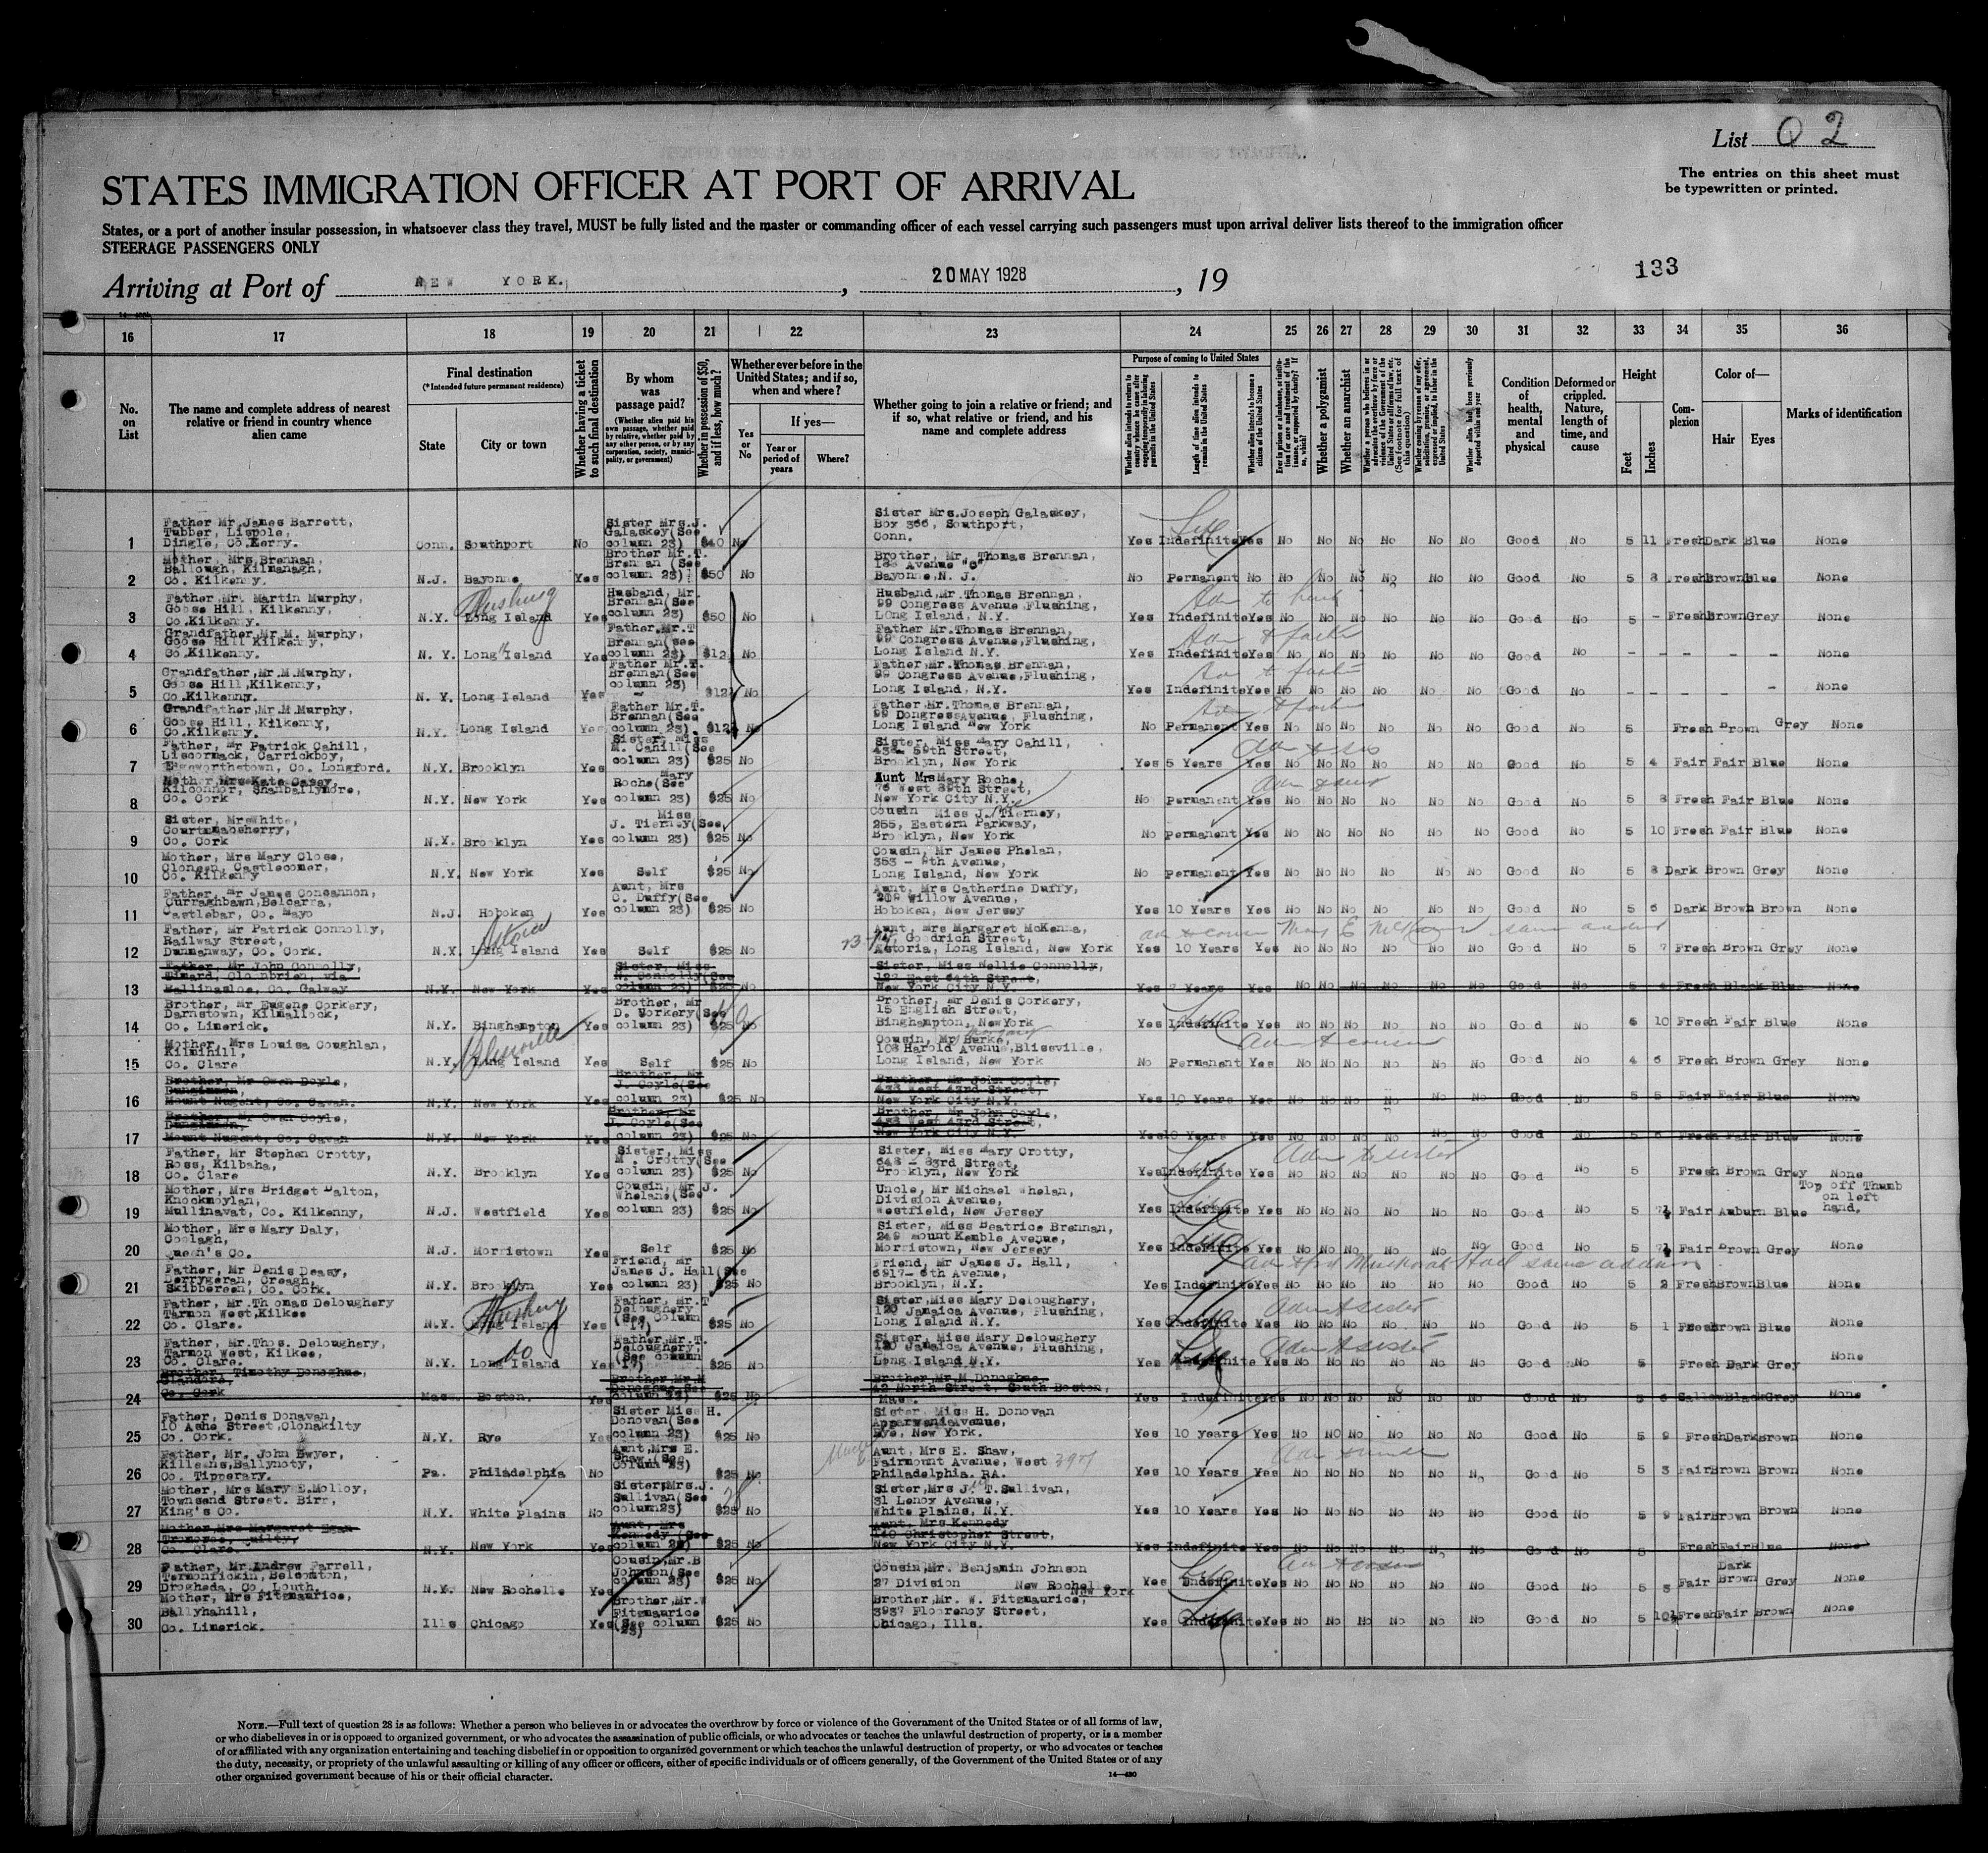 List Q 2
The entries on this sheet must
be typewritten or printed.
STATES IMMIGRATION OFFICER AT PORT OF ARRIVAL
States, or a port of another insular possession, in whatsoever class they travel, MUST be fully listed and the master or commanding officer of each vessel carrying such passengers must upon arrival deliver lists thereof to the immigration officer
STEERAGE PASSENGERS ONLY
Arriving at Port of NEW YORK. , 20 MAY 1928 , 19
133
16 17 18 19 20 21 22 23 24 25 26 27 28 29 30 31 32 33 34 35 36
No. on List
The name and complete address of nearest relative or friend in country whence alien came
Final destination
(*Intended future permanent residence)
State
City or town
Whether having a ticket to such final destination
By whom was passage paid?
(Whether alien paid his own passage, whether paid by relative, whether paid by any other person, or by any corporation, society, municipality, or government)
Whether in possession of $50, and if less, how much?
Whether ever before in the United States; and if so, when and where?
Yes or No
If yes—
Year or period of years
Where?
Whether going to join a relative or friend; and if so, what relative or friend, and his name and complete address
Purpose of coming to United States
Length of time alien intends to remain in the United States
Whether a polygamist
Whether an anarchist
Condition of health, mental and physical
Deformed or crippled. Nature, length of time, and cause
Height
Feet
Inches
Complexion
Color of—
Hair
Eyes
Marks of identification
1 Father Mr James Barrett, Tubber, Lispole, Dingle, Co.Kerry. Conn. Southport No Sister Mrs.J. Galaskey(See column 23) $40 No Sister Mrs.Joseph Galaskey, Box 366, Southport, Conn. Yes Indefinite Yes No No No No No No Good No 5 11 Fresh Dark Blue None
2 Mother, Mrs Brennan, Ballough, Kilmanagh, Co. Kilkenny. N.J. Bayonne Yes Brother Mr.T. Brennan (See column 23) $50 No Brother, Mr. Thomas Brennan, 188 Avenue "C" Bayonne, N. J. No Permanent No No No No No No No Good No 5 8 Fresh Brown Blue None
3 Father,Mr. Martin Murphy, Goose Hill, Kilkenny, Co.Kilkenny. N.Y. Long Island Flushing Yes Husband, Mr. Brennan(See column 23) $50 No Husband,Mr.Thomas Brennan, 99 Congress Avenue,Flushing, Long Island, N.Y. Yes Indefinite Yes No No No No No No Good No 5 - Fresh Brown Grey None
4 Grandfather,Mr.M. Murphy, Goose Hill Kilkenny, Co.Kilkenny. N. Y. Long Island Yes Father,Mr.T Brennan(see column 23) $12 No Father Mr.Thomas Brennan, 99 Congress Avenue,Flushing, Long Island N.Y. Yes Indefinite Yes No No No No No No Good No - - - - - None
5 Grandfather,Mr.M.Murphy, Goose Hill,Kilkenny, Co.Kilkenny. N. Y. Long Island Yes Father Mr.T. Brennan(See column 23) $12 No Father,Mr.Thomas Brennan, 99 Congress Avenue,Flushing, Long Island, N.Y. Yes Indefinite Yes No No No No No No Good No - - - - - None
6 Grandfather,Mr.M.Murphy, Goose Hill, Kilkenny, Co.Kilkenny. N.Y. Long Island Yes Father Mr.T. Brennan(See column 23). $12 No Father Mr.Thomas Brennan, 99 Dongress Avenue, Flushing, Long Island New York No Permanent Yes No No No No No No Good No 5 Fresh Brown Grey None
7 Father, Mr Patrick Cahill, Liscormack, Carrickboy, Edgeworthstown, Co. Longford. N.Y. Brooklyn Yes Sister, Miss M. Cahill(See column 23) $25 No Sister, Miss Mary Cahill, 436- 59th Street, Brooklyn, New York Yes 5 Years Yes No No No No No No Good No 5 4 Fair Fair Blue None
8 Mother,Mrs Kate Casey, Kilconnor, Shanballymore, Co. Cork N.Y. New York Yes Mary Roche(See column 23) $25 No Aunt Mrs Mary Roche, 76 West 89th Street, New York City N.Y. No Permanent Yes No No No No No No Good No 5 8 Fresh Fair Blue None
9 Sister, Mrs White, Courtmacsherry, Co. Cork N.Y. Brooklyn Yes Miss J. Tierney(See column 23) $25 No Cousin Miss J. Tierney, 255, Eastern Parkway, Brooklyn, New York No Permanent Yes No No No No No No Good No 5 10 Fresh Fair Blue None
10 Mother, Mrs Mary Close, Cloneen, Castlecomer, Co. Kilkenny N.Y. New York Yes Self $25 No Cousin, Mr James Phelan, 353 - 9th Avenue, Long Island, New York No Permanent Yes No No No No No No Good No 5 8 Dark Brown Grey None
11 Father, Mr James Concannon, Curraghbawn,Belcarra, Castlebar, Co. Mayo N.J. Hoboken Yes Aunt, Mrs C. Duffy(See column 23) $25 No Aunt, Mrs Catherine Duffy, 209 Willow Avenue, Hoboken, New Jersey Yes 10 Years Yes No No No No No No Good No 5 6 Dark Brown Brown None
12 Father, Mr Patrick Connolly, Railway Street, Dunmanway, Co. Cork. N.Y. Long Island Astoria Yes Self $25 No Aunt, Mrs Margaret McKenna, Goodrich Street, Astoria, Long Island, New York Yes 10 Years Yes No No No No No No Good No 5 7 Fresh Brown Grey None
13 Father, Mr John Connolly, Ballinasloe, Co. Galway N.Y. New York Yes Sister, Miss N. Connolly(See column 23) $25 No Sister, Miss Nellie Connolly, New York City N.Y. Yes Years Yes No No No No No No Good No 5 Fresh Black Blue None
14 Brother, Mr Eugene Corkery, Darnstown, Kilmallock, Co. Limerick. N.Y. Binghampton Yes Brother, Mr D. Corkery(See column 23) $25 No Brother, Mr Denis Corkery, 15 English Street, Binghampton, NewYork Yes Indefinite Yes No No No No No No Good No 6 10 Fresh Fair Blue None
15 Mother, Mrs Louisa Coughlan, Kilmihill, Co. Clare N.Y. Long Island Blissville Yes Self $25 No Cousin, Mr Burke, 108 Harold Avenue,Bliseville, Long Island, New York No Permanent Yes No No No No No No Good No 4 6 Fresh Brown Grey None
16 Brother, Mr Owen Coyle, Mount Nugent, Co. Cavan. N.Y. New York Yes Brother, Mr J. Coyle(See column 23) $25 No Brother, Mr John Coyle, 433 West 43rd Street, New York City N.Y. Yes 10 Years Yes No No No No No No Good No 5 5 Fair Fair Blue None
17 Brother, Mr Owen Coyle, Mount Nugent, Co. Cavan N.Y. New York Yes Brother, Mr J. Coyle(See column 23) $25 No Brother, Mr John Coyle, 433 West 43rd Street, New York City N.Y. Yes Years Yes No No No No No No Good No 5 6 Fresh Fair Blue None
18 Father, Mr Stephen Crotty, Ross, Kilbaha, Co. Clare N.Y. Brooklyn Yes Sister, Miss M. Crotty(See column 23) $25 No Sister, Miss Mary Crotty, 648 - 83rd Street, Brooklyn, New York Yes Indefinite Yes No No No No No No Good No 5 Fresh Brown Grey None
19 Mother, Mrs Bridget Dalton, Knockmoylan, Mullinavat, Co. Kilkenny, N.J. Westfield Yes Cousin, Mr J. Whelans(See column 23) $25 No Uncle, Mr Michael Whelan, Division Avenue, Westfield, New Jersey Yes Indefinite Yes No No No No No No Good No 5 7½ Fair Auburn Blue Top off Thumb on left hand.
20 Mother, Mrs Mary Daly, Coolagh, Queen's Co. N.J. Morristown Yes Self $25 No Sister, Miss Beatrice Brennan, 249 Mount Kemble Avenue, Morristown, New Jersey Yes Indefinite Yes No No No No No No Good No 5 7½ Fair Brown Grey None
21 Father, Mr Denis Deasy, Derrygeran, Creagh, Skibbereen, Co. Cork. N.Y. Brooklyn Yes Friend, Mr James J. Hall(See column 23) $25 No Friend, Mr James J. Hall, 6917- 6th Avenue, Brooklyn, N.Y. Yes Indefinite Yes No No No No No No Good No 5 2 Fresh Brown Blue None
22 Father, Mr.Thomas Deloughery Tarmon West,Kilkee Co. Clare. N.Y. Long Island Flushing Yes Father, Mr.T Deloughery (See Column 17) $25 No Sister,Miss Mary Deloughery, 120 Jamaica Avenue, Flushing, Long Island N.Y. Yes Indefinite Yes No No No No No No Good No 5 1 Fresh Brown Blue None
23 Father, Mr.Thos. Deloughery, Tarmon West, Kilkee, Co. Clare. N.Y. Long Island do Yes Father Mr.T. Deloughery, (See column 17) $25 No Sister, Miss Mary Deloughery 120 Jamaica Avenue, Flushing, Long Island N.Y. Yes Indefinite Yes No No No No No No Good No 5 Fresh Dark Grey None
24 Brother, Timothy Donoghue, Glandore, Co. Cork Mass. Boston. Yes Brother,Mr M Donoghue See column 23) $25 No Brother,Mr.M.Donoghue, 42 North Street, South Boston, Mass. Yes Indefinite Yes No No No No No No Good No 5 6 Sallow Black Grey None
25 Father, Denis Donavan, 10 Ashe Street,Clonakilty Co. Cork. N.Y. Rye Yes Sister Miss H. Donovan(See column 23) $25 No Sister, Miss H. Donovan Apparwania Avenue, Rye, New York. Yes 10 years Yes No No No No No No Good No 5 9 Fresh Dark Brown None
26 Father, Mr. John Dwyer, Killeens,Ballynoty, Co. Tipperary. Pa. Philadelphia No Aunt,Mrs E. Shaw,(See Column 23) $25 No Aunt, Mrs E. Shaw, Fairmount Avenue, West Philadelphia. PA. Yes 10 Years Yes No No No No No No Good No 5 3 Fair Brown Brown None
27 Mother, Mrs Mary E.Molloy, Townsend Street. Birr, King's Co. N.Y. White Plains No Sister,Mrs.J. Sullivan(See column23) $25 No Sister,Mrs J. T.Sullivan, 31 Lenox Avenue, White Plains, N.Y. Yes 10 Years Yes No No No No No No Good No 5 9 Fair Brown Brown None
28 Mother,Mrs Margaret Egan Quilty, Co. Clare. N.Y. New York Yes Aunt, Mrs Kennedy (See column 23) $25 No Aunt, Mrs Kennedy 140 Christopher Street, New York City N.Y. Yes Indefinite Yes No No No No No No Good No 5 Fresh Fair Blue None
29 Father, Mr.Andrew Farrell, Termonfickin, Belcomton, Drogheda, Co. Louth. N.Y. New Rochelle Yes Cousin,Mr.B Johnson(See column 23) $25 No Cousin,Mr. Benjamin Johnson 27 Division New Rochelle New York Yes Indefinite Yes No No No No No No Good No 5 5 Fair Dark Brown Grey None
30 Mother, Mrs Fitzmaurice, Ballyhahill, Co. Limerick. Ills Chicago Yes Brother,Mr.W Fitzmaurice (See column 23) $25 No Brother,Mr. W. Fitzmaurice, 3937 Flourency Street, Chicago, Ills. Yes Indefinite Yes No No No No No No Good No 5 10½ Fresh Fair Brown None
NOTE.—Full text of question 28 is as follows: Whether a person who believes in or advocates the overthrow by force or violence of the Government of the United States or of all forms of law,
or who disbelieves in or is opposed to organized government, or who advocates the assassination of public officials, or who advocates or teaches the unlawful destruction of property, or is a member
of or affiliated with any organization entertaining and teaching disbelief in or opposition to organized government or which teaches the unlawful destruction of property, or who advocates or teaches
the duty, necessity, or propriety of the unlawful assaulting or killing of any officer or officers, either of specific individuals or of officers generally, of the Government of the United States or of any
other organized government because of his or their official character.
14—480